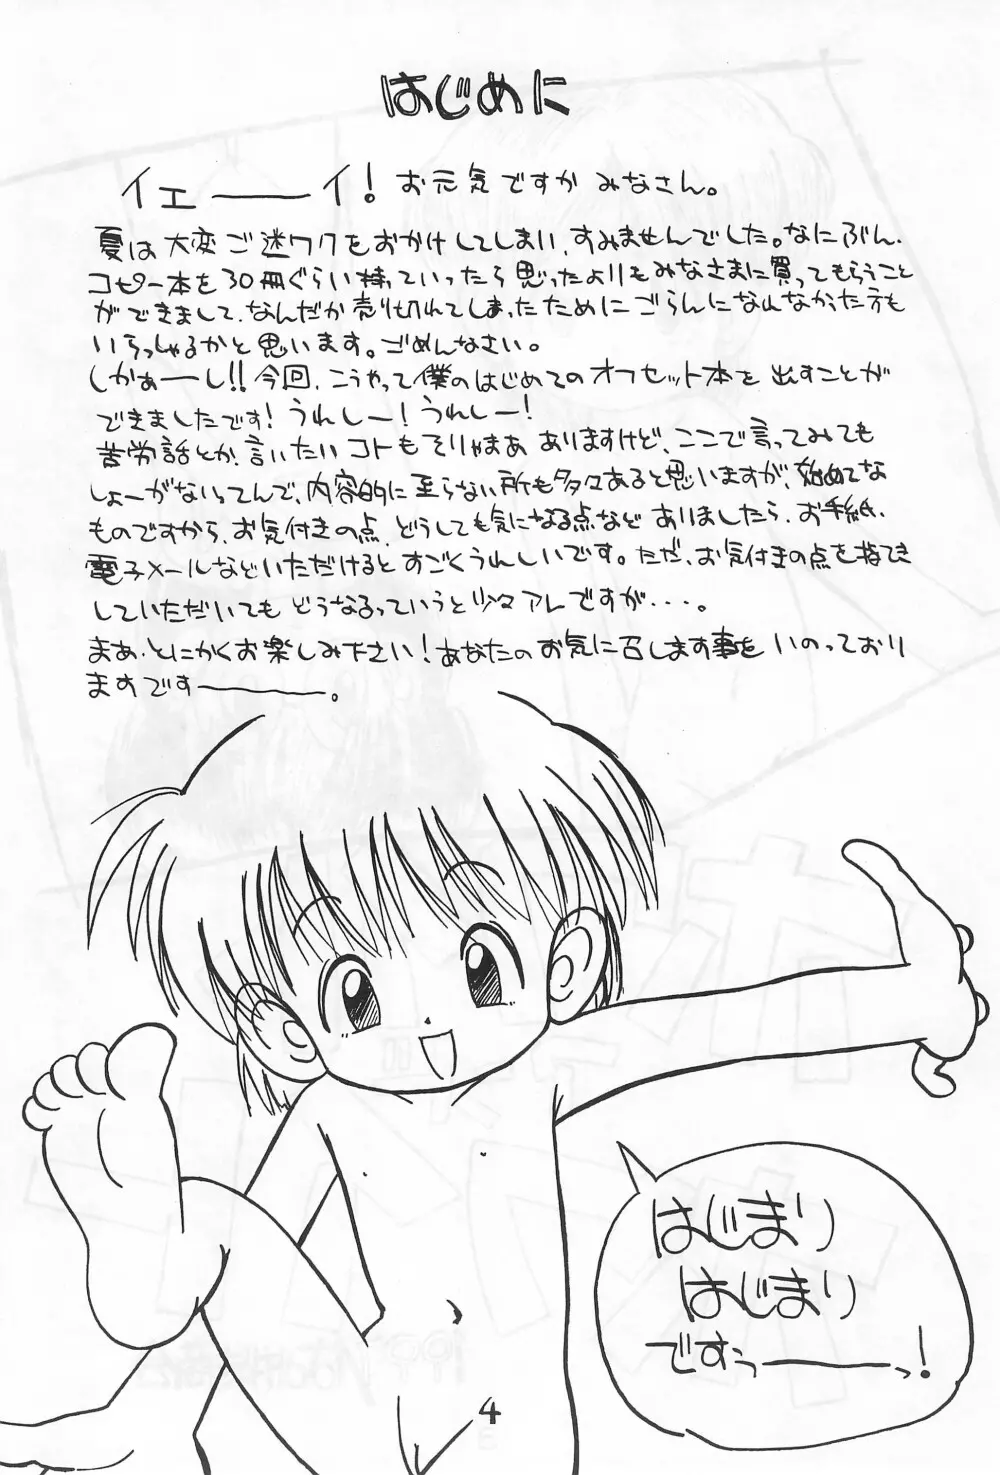 はじめに
イエーーイ! お元気ですか みなさん。
夏は大変ご迷ワクをおかけしてしまい、すみませんでした。なにぶん、
コピー本を30冊ぐらい持っていったら思ったよりもみなさまに買ってもらうこと
ができまして、なんだか売り切れてしまったためにごらんになれなかった方も
いらっしゃるかと思います。ごめんなさい。
しかぁーし!! 今回、こうやって僕のはじめてのオフセット本を出すことが
できましたです! うれしー! うれしー!
苦労話とか、言いたいコトもそりゃまあ ありますけど、ここで言ってみても
しょーがないってんで、内容的に至らない所も多々あると思いますが、始めてな
ものですから、お気付きの点、どうしても気になる点など ありましたら、お手紙、
電子メールなどいただけると すごくうれしいです。ただ、お気付きの点を指てき
していただいても どうなるっていうと少々アレですが・・・。
まあ、とにかくお楽しみ下さい! あなたのお気に召します事を いのっており
ますですーーー。
はじまり
はじまり
ですぅーーっ!
4